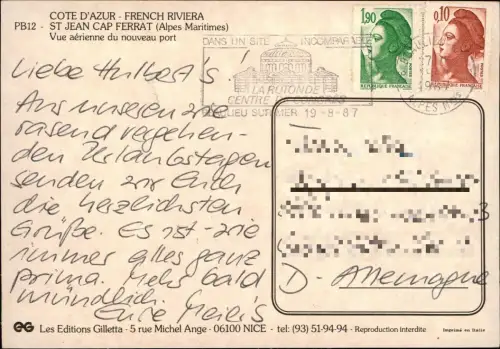 COTE D'AZUR - FRENCH RIVIERA
PB12 - ST JEAN CAP FERRAT (Alpes Maritimes)
Vue aérienne du nouveau port
1,90
0,10
REPUBLIQUE FRANÇAISE
REPUBLIQUE FRANÇAISE
DANS UN SITE INCOMPARABLE
LA ROTONDE
CENTRE DE CONGRES
BEAULIEU SUR MER 19-8-87
Liebe Hulbert's!
Aus unseren wie
rasend vergehen-
den Urlaubstagen
senden wir Euch
die herzlichsten
Grüße. Es ist - wie
immer alles ganz
prima. Mehr bald
mündlich.
Eure Meier's
D - Allemagne
EG Les Editions Gilletta - 5 rue Michel Ange - 06100 NICE - tel: (93) 51-94-94 - Reproduction interdite
Imprimé en Italie